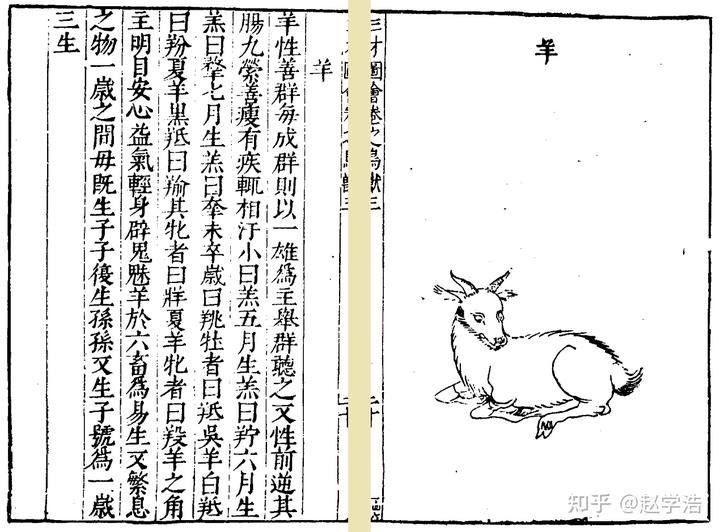 羊
才圖會卷之鳥獸三
羊
羊性善群每成群則以一雄爲主舉群聽之又性前逆其
腸九縈善瘦有疾輒相汙小曰羔五月生羔曰羜六月生
羔曰七月生羔曰羍未卒歲曰𦍩牡者曰羝吳羊白羝
曰羒夏羊黑羝曰羭其牝者曰牂夏羊牝者曰羖羊之角
主明目安心益氣輕身辟鬼魅羊於六畜爲易生又繁息
之物一歲之間毋既生子子後生孫孫又生子號爲一歲
三生
知乎 @赵学浩